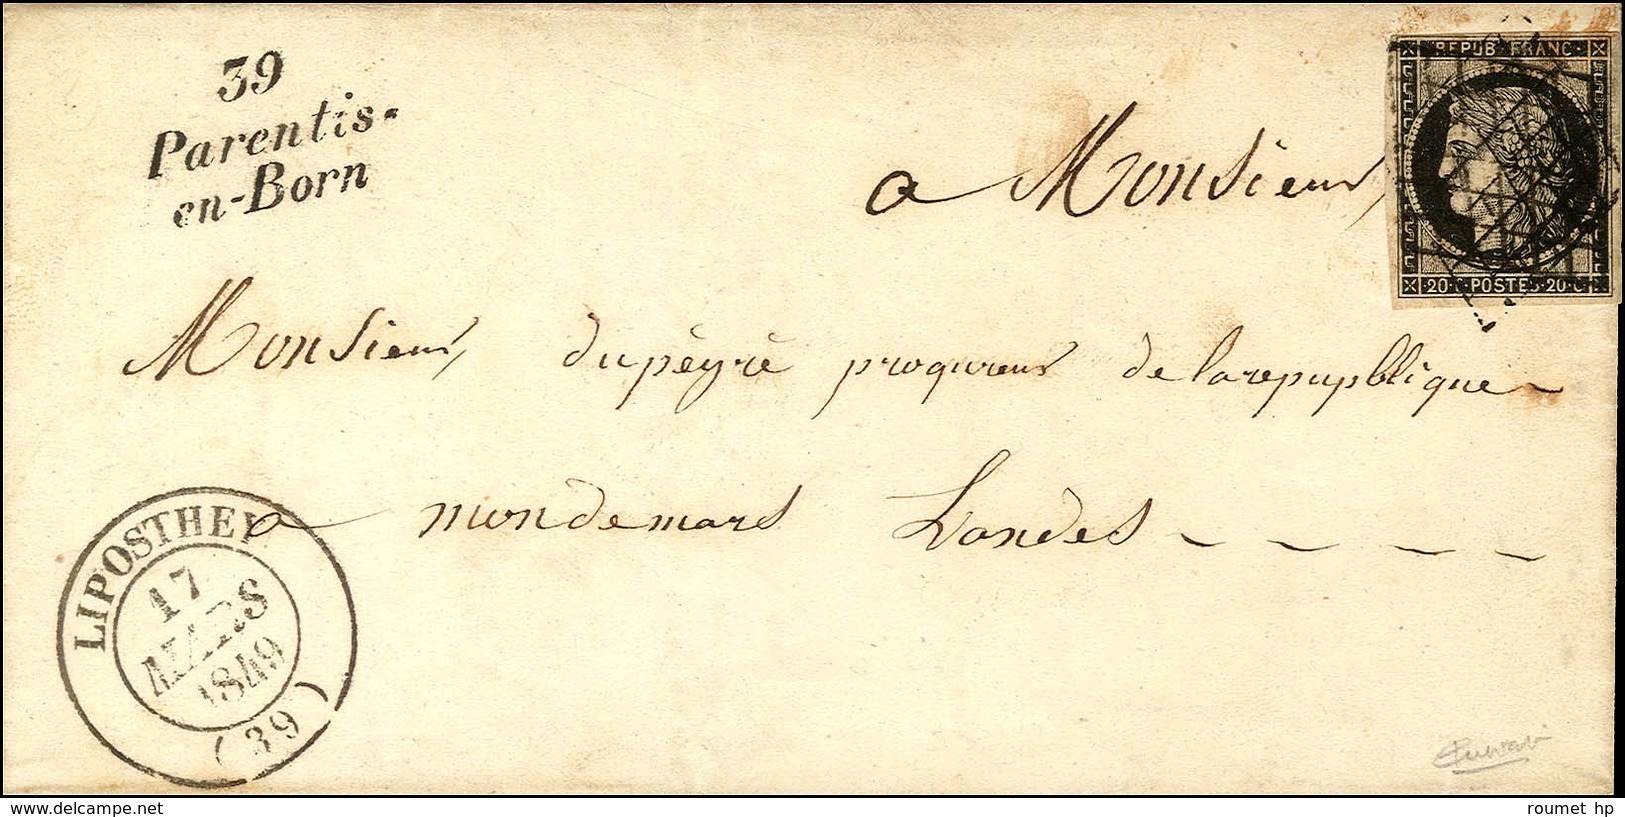 39
Parentis-
en-Born
REPUB. FRANC.
20.c POSTES 20.c
a Monsieur
Monsieur dupèyré proqureur de larepupblique
a mondemars Landes
LIPOSTHEY
17
MARS
1849
(39)
delcampe.net
roumet hp